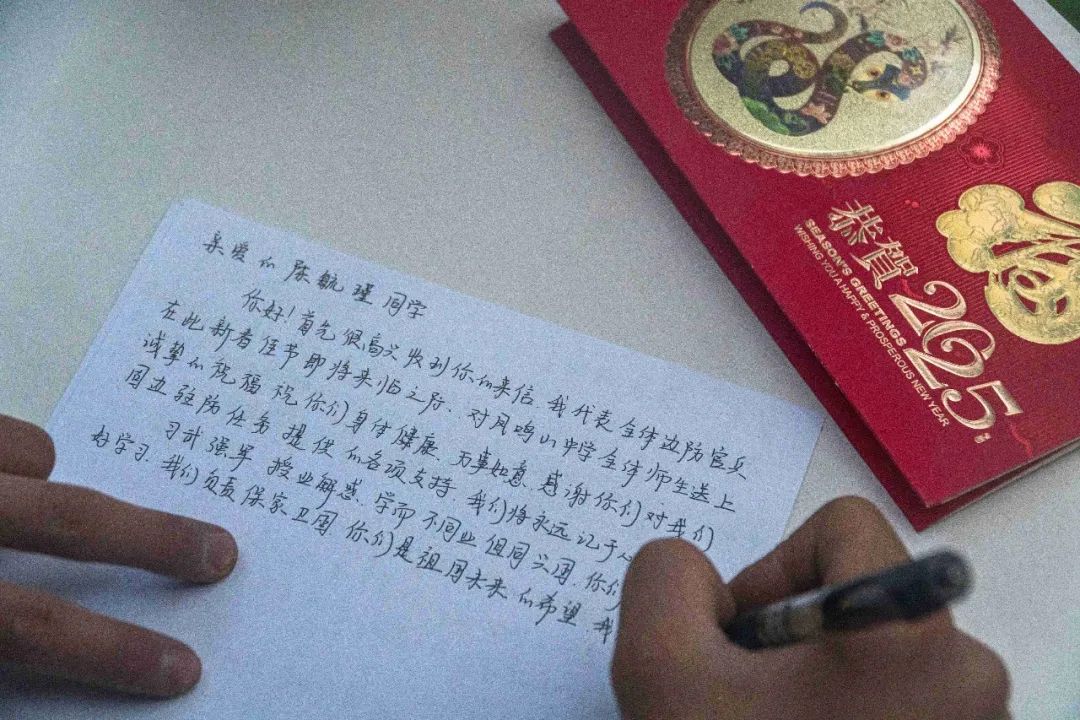 亲爱的陈毓瑾同学
你好!首先很高兴收到你的来信.我代表全体边防官兵
在此新春佳节即将来临之际、对凤鸣山中学全体师生送上
诚挚的祝福 祝你们身体健康 万事如意.感谢你们对我们
固边驻防任务提供的各项支持 我们将永远记于
习武强军 授业解惑.学而不同业 但同兴国.你们
好学习.我们负责保家卫国 你们是祖国未来的希望.我
恭賀
SEASON'S GREETINGS
WISHING YOU A HAPPY & PROSPEROUS NEW YEAR
2025